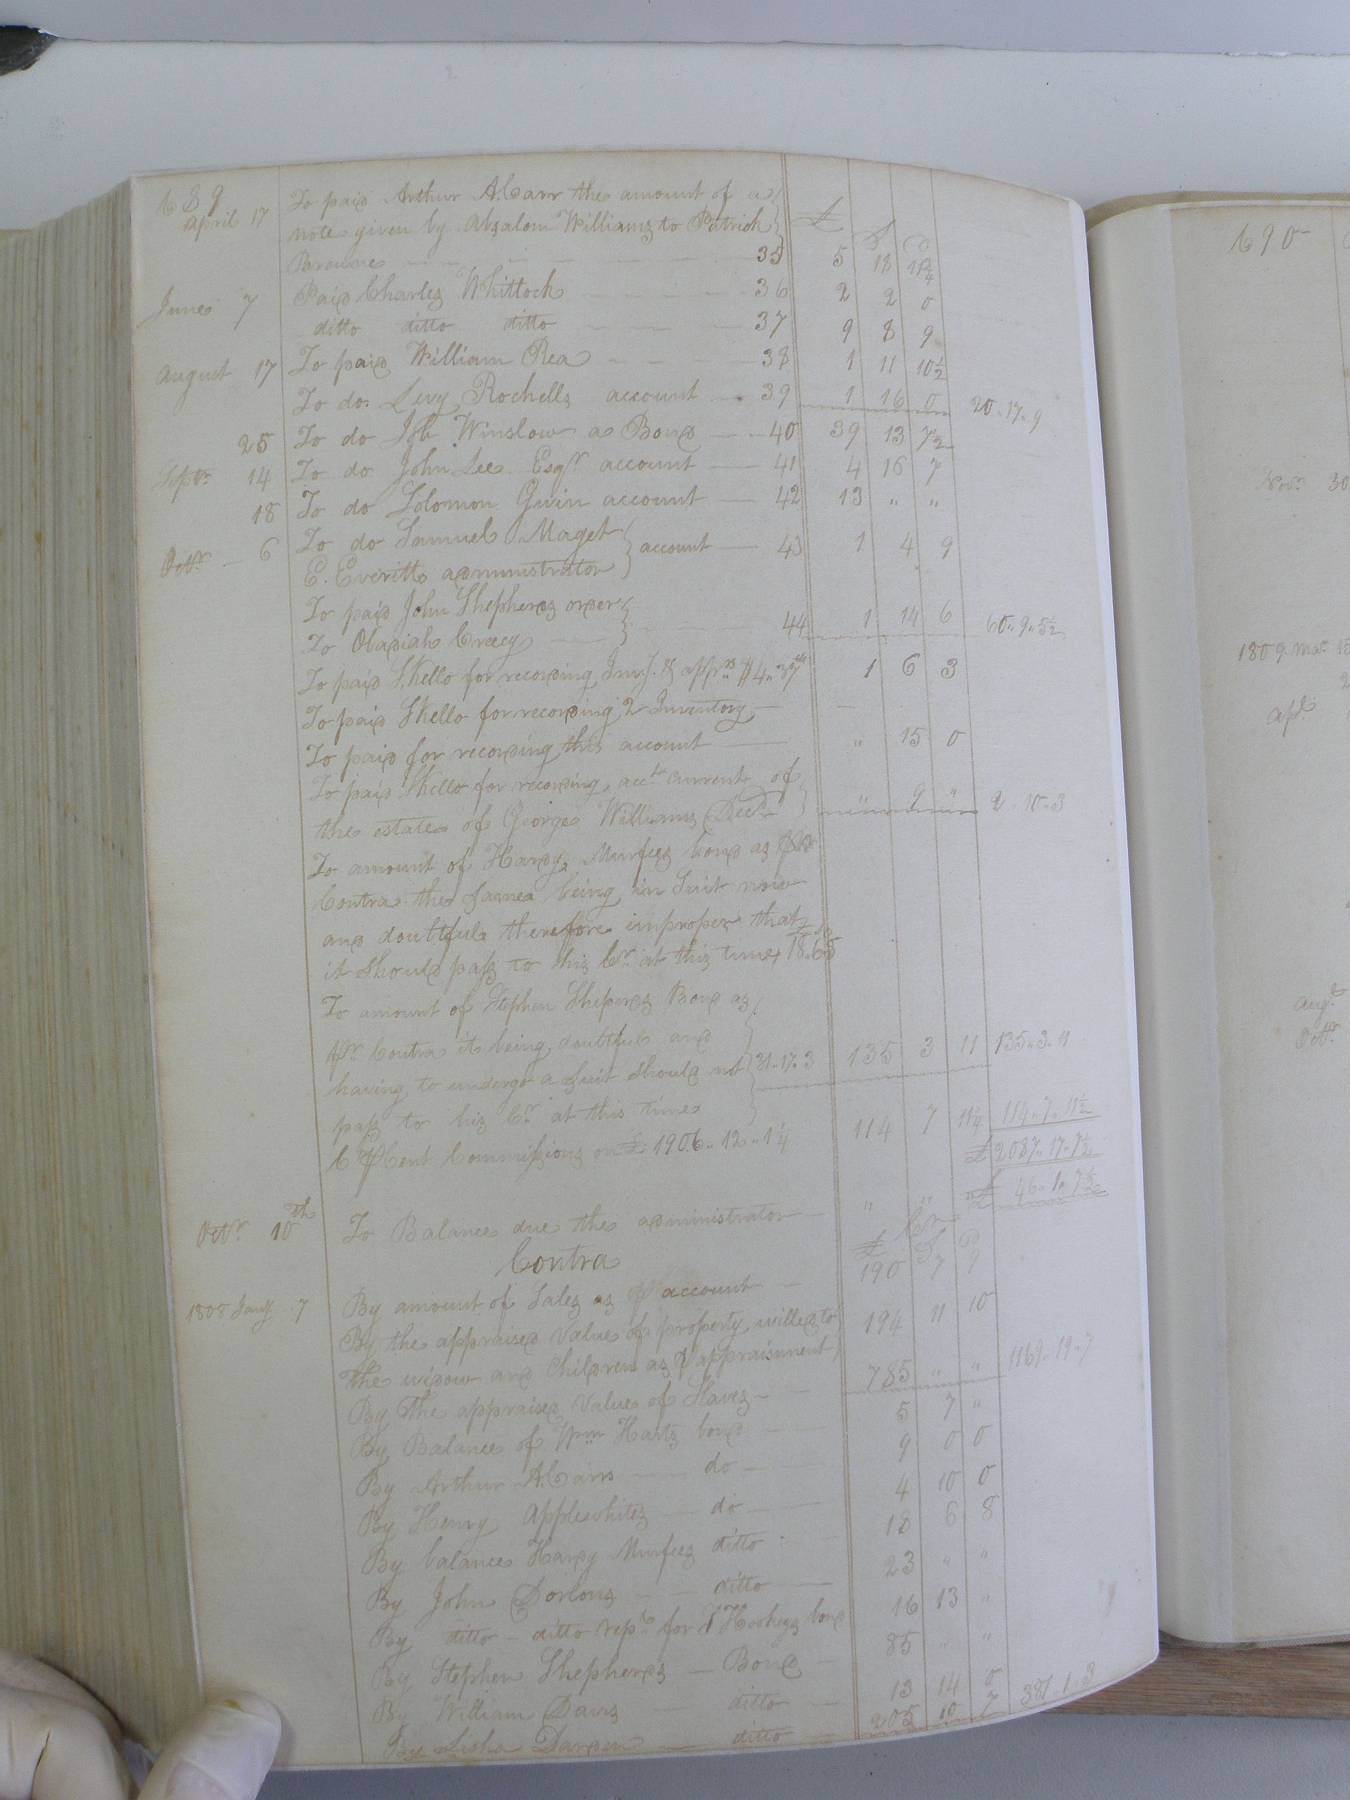 689
April 17 To paid Arthur A. Carr the amount of a £ S D
note given by Absalom Williams to Patrick
Browne 35 5 18 11¼
June 7 Paid Charles Whitlock 36 2 2 0
ditto ditto ditto 37 9 8 9
August 17 To paid William Rea 38 1 11 10½
To do. Levy Rochells account 39 1 16 0 20..17..9
25 To do Job Winslow a Bond 40 39 13 7½
Septr. 14 To do John Lee Esqr account 41 4 16 7
18 To do Solomon Gwin account 42 13 " "
Octr. 6 To do Samuel Maget account 43 1 4 9
E. Everitt administrator
To paid John Shepherds order
To Obadiah Creecy 44 1 14 6 60..9..5½
To paid S. Kello for recording Invy. & apprs. $4..37 1 6 3
To paid S Kello for recording 2 Inventory
To paid for recording this account " 15 0
To paid S Kello for recording acct. current of
the estate of George Williams Decd. " 9 " 2..10..3
To amount of Hardy Murfees bond as pr
Contra the same being in suit now
and doubtful therefore improper that
it should pass to his Cr. at this time 18.6.8
To amount of Stephen Sheperds Bond as
pr Contra its being doubtful and
having to undergo a suit should not 135 3 11 135..3..11
pass to his Cr. at this time
6 pr Cent Commissions on £ 1906..12..1¼ 114 7 11½ 114..7..11½
£ 2087..17..7½
Octr. 10th To Balance due the administrator " " £ 46..1..7½
Contra Cr
£ S D
1808 Jany. 7 By amount of Sales as pr account 190 7 9
By the appraised value of property willed to
the widow and children as pr appraisment 194 11 10
By the appraised value of Slaves 785 " " 1169..19..7
By Balance of Wm. Harts bond 5 7 "
By Arthur A. Carrs do 9 0 0
By Henry Applewhites do 4 10 0
By balance Hardy Murfees ditto 18 6 8
By John Dorlons ditto 23 " "
By ditto ditto for Hookeys bond 16 13 "
By Stephen Shepherds Bond 85 " "
By William Davis ditto 13 14 0
By Lisha Darden ditto 205 10 7 381..1..3
690
Novr. 30
1809 Mar. 15
2
apl.
augt.
Octr.